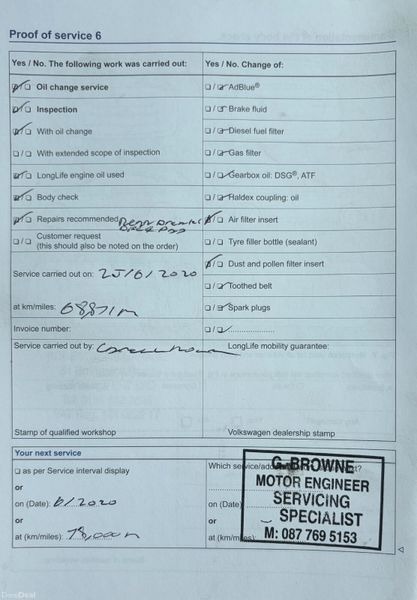 Proof of service 6
Yes / No. The following work was carried out:
Oil change service
Inspection
With oil change
With extended scope of inspection
LongLife engine oil used
Body check
Repairs recommended
Customer request
(this should also be noted on the order)
Service carried out on: 25/6/2020
at km/miles: 68,871 m
Invoice number:
Service carried out by:
Stamp of qualified workshop
Yes / No. Change of:
AdBlue®
Brake fluid
Diesel fuel filter
Gas filter
Gearbox oil: DSG®, ATF
Haldex coupling: oil
Air filter insert
Tyre filler bottle (sealant)
Dust and pollen filter insert
Toothed belt
Spark plugs
LongLife mobility guarantee:
Volkswagen dealership stamp
Your next service
as per Service interval display
or
on (Date): 6/2020
or
at (km/miles): 78,000 m
Which
or
on (Date)
or
G. BROWNE
MOTOR ENGINEER
SERVICING
SPECIALIST
M: 087 769 5153
DoneDeal